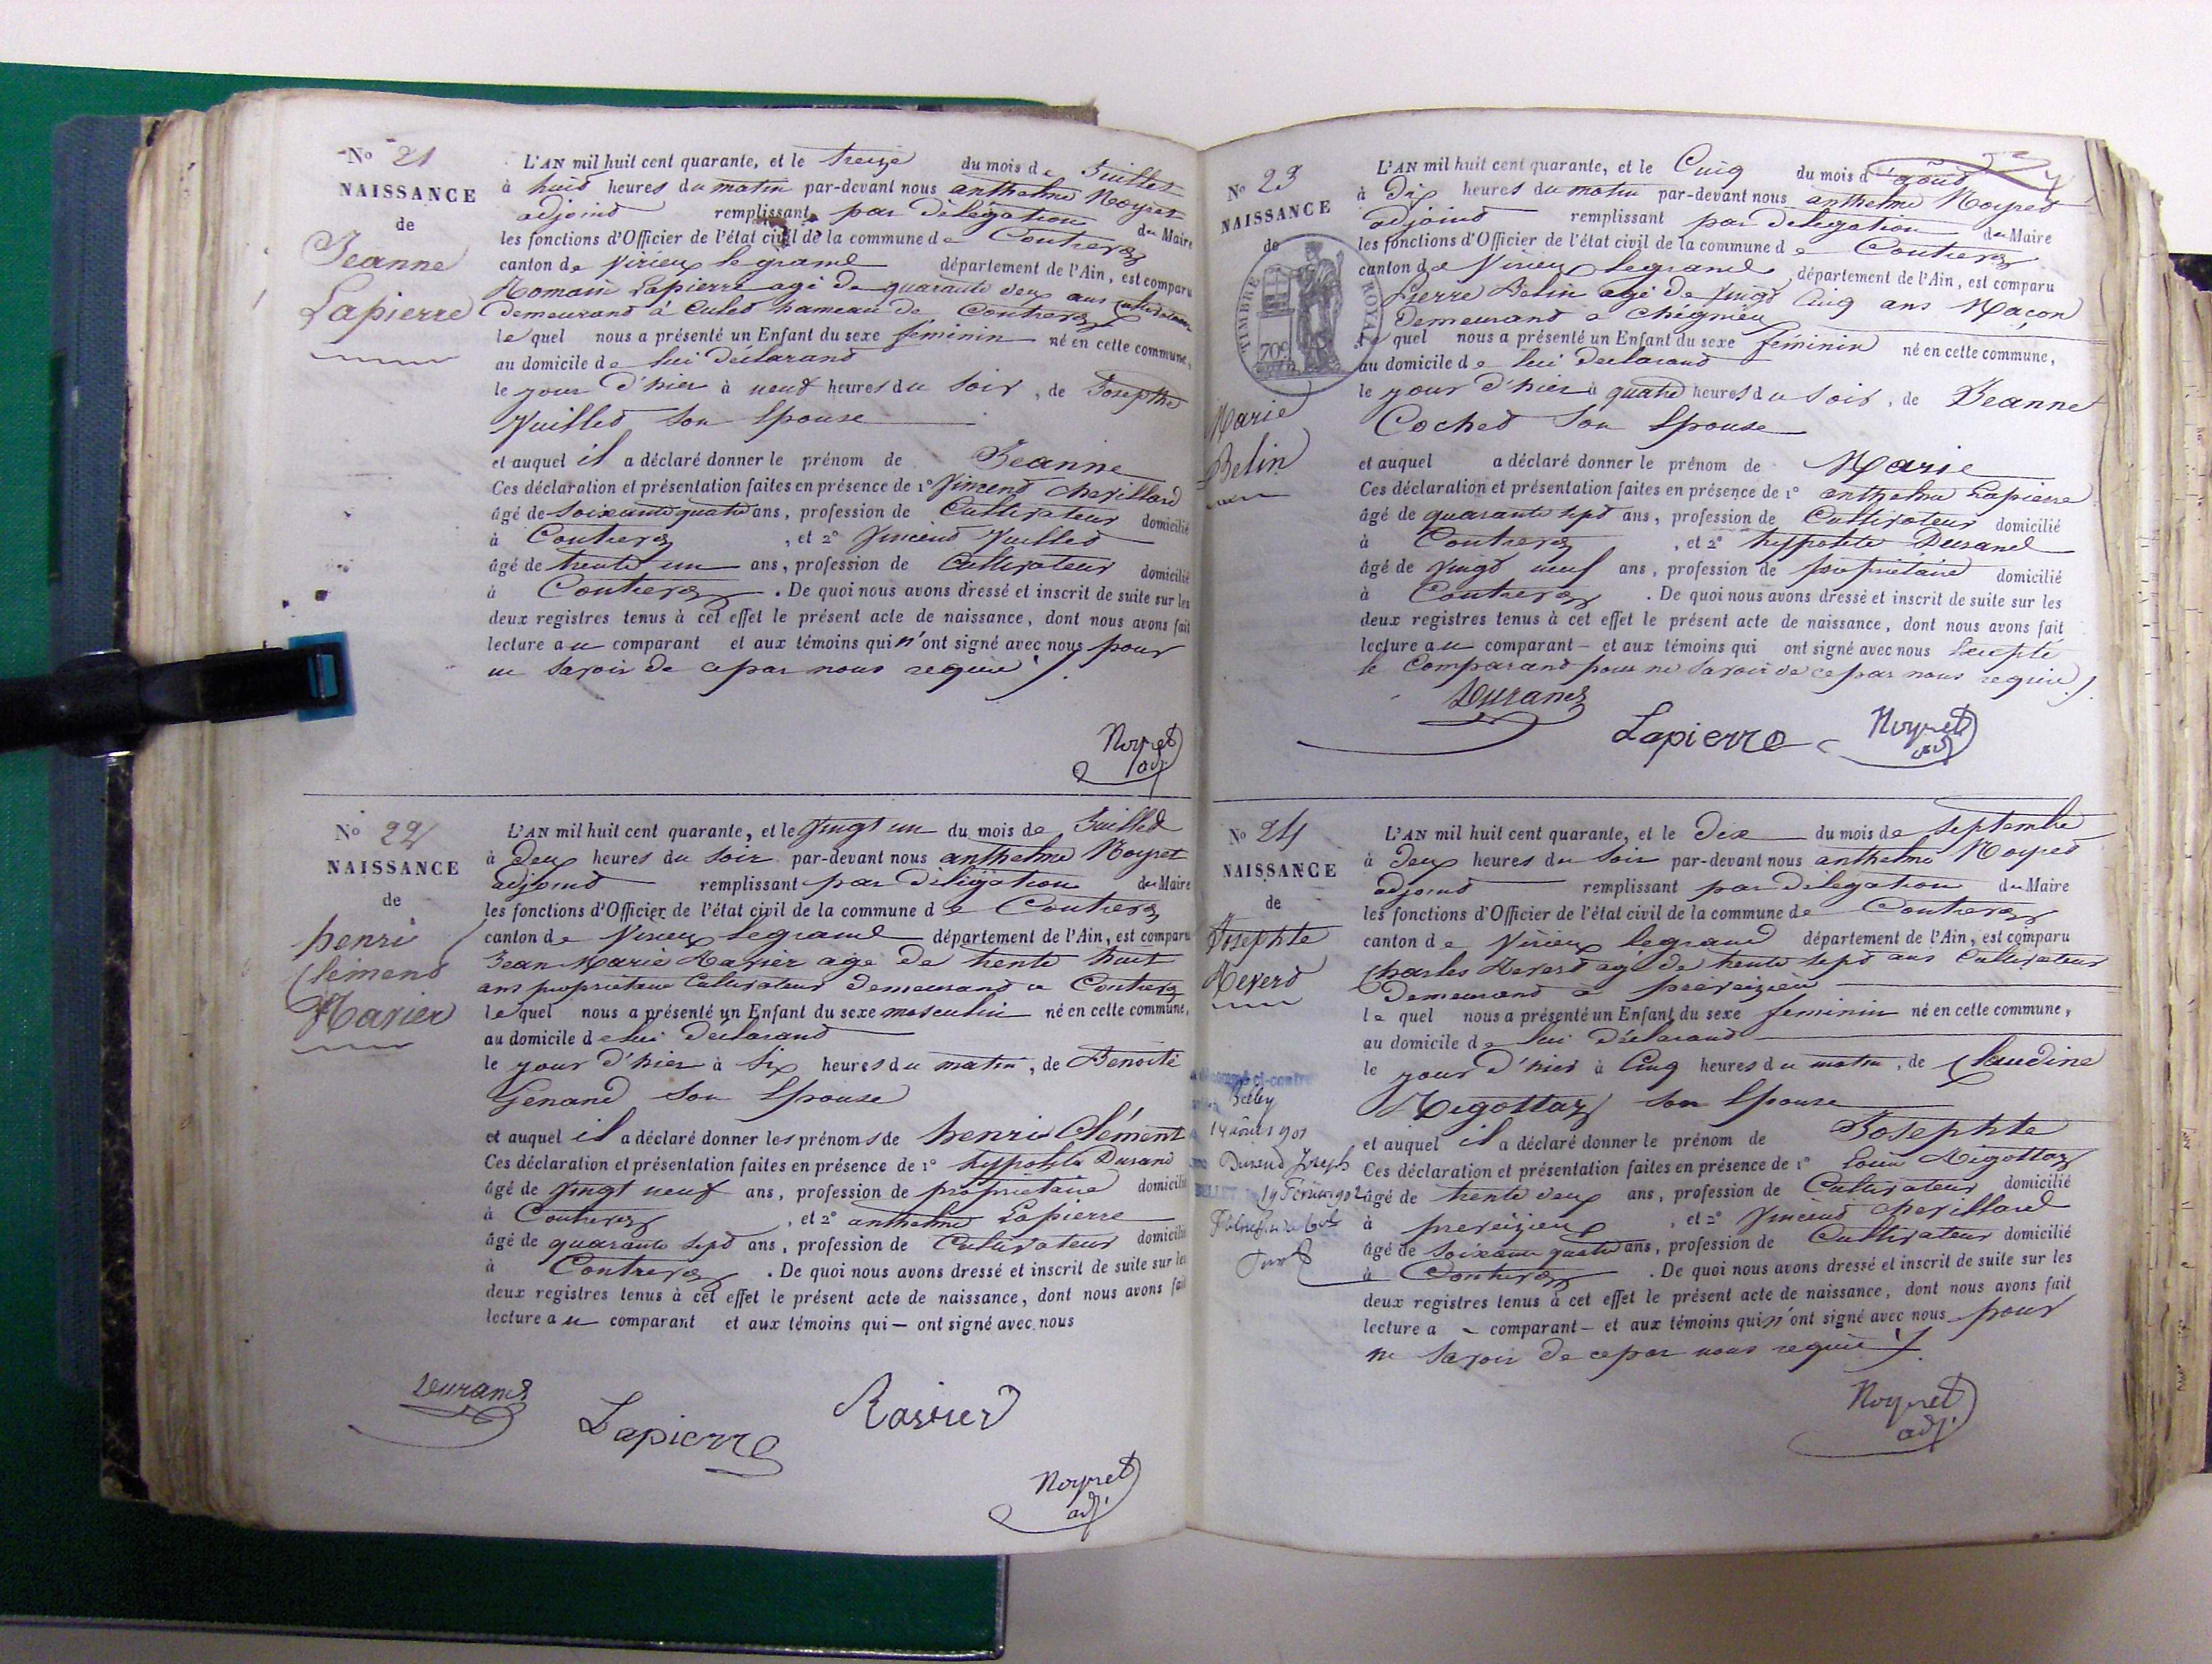 No 21
NAISSANCE
de
Jeanne
Lapierre
L'AN mil huit cent quarante, et le treize du mois de Juillet
à huit heures du matin par-devant nous anthelme Noyret
adjoint remplissant par délégation du Maire
les fonctions d'Officier de l'état civil de la commune de Contrevoz
canton de Virieux legrand département de l'Ain, est comparu
Romain Lapierre agé de quarante deux ans cultivateur
demeurand à Culed hameau de Contrevoz
le quel nous a présenté un Enfant du sexe feminin né en cette commune,
au domicile de lui déclarand
le jour d'hier à neuf heures du soir, de Josephte
Vuilled son Epouse
et auquel il a déclaré donner le prénom de Jeanne
Ces déclaration et présentation faites en présence de 1° Vincend chevillard
âgé de soixante quatre ans, profession de Cultivateur domicilié
à Contrevoz, et 2° Vincend Vuilled
âgé de trente un ans, profession de Cultivateur domicilié
à Contrevoz. De quoi nous avons dressé et inscrit de suite sur les
deux registres tenus à cet effet le présent acte de naissance, dont nous avons fait
lecture au comparant et aux témoins qui n'ont signé avec nous pour
ne savoir de ce par nous requis
Noyret
adj.
No 22
NAISSANCE
de
henri
Clémend
Ravier
L'AN mil huit cent quarante, et le vingt un du mois de Juillet
à deux heures du soir par-devant nous anthelme Noyret
adjoint remplissant par délégation du Maire
les fonctions d'Officier de l'état civil de la commune de Contrevoz
canton de Virieux legrand département de l'Ain, est comparu
Jean Marie Ravier agé de trente huit
ans propriétaire Cultivateur demeurand a Contrevoz
le quel nous a présenté un Enfant du sexe masculin né en cette commune,
au domicile de lui déclarand
le jour d'hier à six heures du matin, de Benoite
Genand son Epouse
et auquel il a déclaré donner les prénoms de henri Clément
Ces déclaration et présentation faites en présence de 1° hyppolite Durand
âgé de vingt neuf ans, profession de propriétaire domicilié
à Contrevoz, et 2° anthelme Lapierre
âgé de quarante sept ans, profession de Cultivateur domicilié
à Contrevoz. De quoi nous avons dressé et inscrit de suite sur les
deux registres tenus à cet effet le présent acte de naissance, dont nous avons fait
lecture au comparant et aux témoins qui — ont signé avec nous
Durand
Lapierre
Ravier
Noyret
adj.
No 23
NAISSANCE
de
TIMBRE ROYAL
70c
Marie
Belin
L'AN mil huit cent quarante, et le Cinq du mois d'août
à Dix heures du matin par-devant nous anthelme Noyred
adjoind remplissant par délégation du Maire
les fonctions d'Officier de l'état civil de la commune de Contrevoz
canton de Virieux legrand, département de l'Ain, est comparu
Pierre Belin agé de vingt Cinq ans Maçon
demeurand a Chégnieu
le quel nous a présenté un Enfant du sexe feminin né en cette commune,
au domicile de lui declarand
le jour d'hier à quatre heures du soir, de Jeanne
Coched son Epouse
et auquel a déclaré donner le prénom de Marie
Ces déclaration et présentation faites en présence de 1° anthelme Lapierre
âgé de quarante sept ans, profession de Cultivateur domicilié
à Contrevoz, et 2° hyppolite Durand
âgé de vingt neuf ans, profession de propriétaire domicilié
à Contrevoz. De quoi nous avons dressé et inscrit de suite sur les
deux registres tenus à cet effet le présent acte de naissance, dont nous avons fait
lecture au comparant — et aux témoins qui ont signé avec nous Excepté
le Comparand pour ne savoir de ce par nous requis
Durand
Lapierre
Noyret
adj
No 24
NAISSANCE
de
Josephte
Reverd
ci-contre
Belley
14 août 1901
Durand Joseph
BELLEY
19 Février 1902
L'AN mil huit cent quarante, et le dix du mois de septembre
à deux heures du soir par-devant nous anthelme Noyred
adjoind remplissant par délégation du Maire
les fonctions d'Officier de l'état civil de la commune de Contrevoz
canton de Virieux legrand département de l'Ain, est comparu
Charles Reverd agé de trente sept ans Cultivateur
demeurand a preveizieu
le quel nous a présenté un Enfant du sexe feminin né en cette commune,
au domicile de lui déclarand
le jour d'hier à Cinq heures du matin, de Claudine
Rigottaz son Epouse
et auquel il a déclaré donner le prénom de Josephte
Ces déclaration et présentation faites en présence de 1° Louis Rigottaz
âgé de trente deux ans, profession de Cultivateur domicilié
à preveizieu, et 2° Vincend chevillard
âgé de soixante quatre ans, profession de Cultivateur domicilié
à Contrevoz. De quoi nous avons dressé et inscrit de suite sur les
deux registres tenus à cet effet le présent acte de naissance, dont nous avons fait
lecture a comparant — et aux témoins qui n'ont signé avec nous pour
ne savoir de ce par nous requis
Noyret
adj.